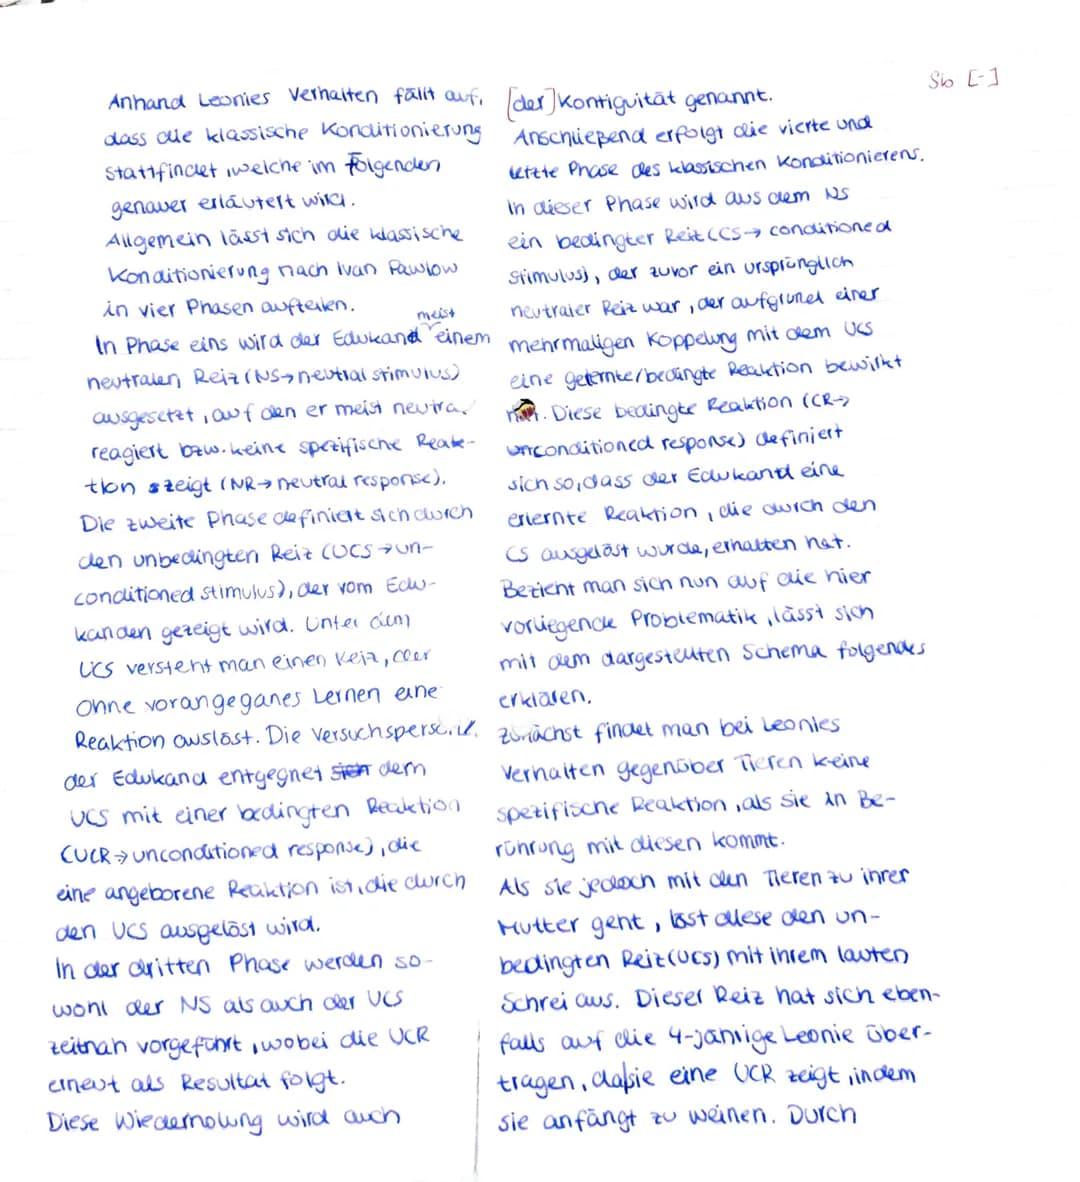 Anhand Leonies Verhalten fällt auf,
dass die klassische Konditionierung
stattfindet, welche im Folgenden
genauer erläutert wird.
Allgemein lässt sich die klassische
Konditionierung nach Ivan Pawlow
in vier Phasen aufteilen.
meist
In Phase eins wird der Edukand einem
neutralen Reiz (NS→neutral stimulus)
ausgesetzt, auf den er meist neutral
reagiert bzw. keine spezifische Reak-
tion zeigt (NR→neutral response).
Die zweite Phase definiert sich durch
den unbedingten Reiz (UCS→un-
conditioned stimulus), der vom Edu-
kanden gezeigt wird. Unter dem
UCS versteht man einen Reiz, der
Ohne vorangeganes Lernen eine
Reaktion auslöst. Die Versuchsperson
der Edukand entgegnet sich dem
UCS mit einer bedingten Reaktion
(UCR→unconditioned response), die
eine angeborene Reaktion ist, die durch
den UCS ausgelöst wird.
In der dritten Phase werden so-
wohl der NS als auch der UCS
zeitnah vorgeführt, wobei die UCR
erneut als Resultat folgt.
Diese Wiederholung wird auch
Sb [-]
[der] Kontiguität genannt.
Anschließend erfolgt die vierte und
letzte Phase des klassischen Konditionierens.
In dieser Phase wird aus dem NS
ein bedingter Reit (CS→ conditioned
stimulus), der zuvor ein ursprünglich
neutraler Reiz war, der aufgrund einer
mehrmaligen Koppelung mit dem UCS
eine gelernte/bedingte Reaktion bewirkt
. Diese bedingte Reaktion (CR→
unconditioned response) definiert
sich so, dass der Edukand eine
erlernte Reaktion, die durch den
CS ausgelöst wurde, erhalten hat.
Bezieht man sich nun auf die hier
vorliegende Problematik, lässt sich
mit dem dargestellten Schema folgendes
erklären.
Zunächst findet man bei Leonies
Verhalten gegenüber Tieren keine
spezifische Reaktion, als sie in Be-
rührung mit diesen kommt.
Als sie jedoch mit den Tieren zu ihrer
Mutter geht, löst diese den un-
bedingten Reiz (UCS) mit ihrem lauten
Schrei aus. Dieser Reiz hat sich eben-
falls auf die 4-jährige Leonie über-
tragen, da sie eine UCR zeigt, indem
sie anfängt zu weinen. Durch